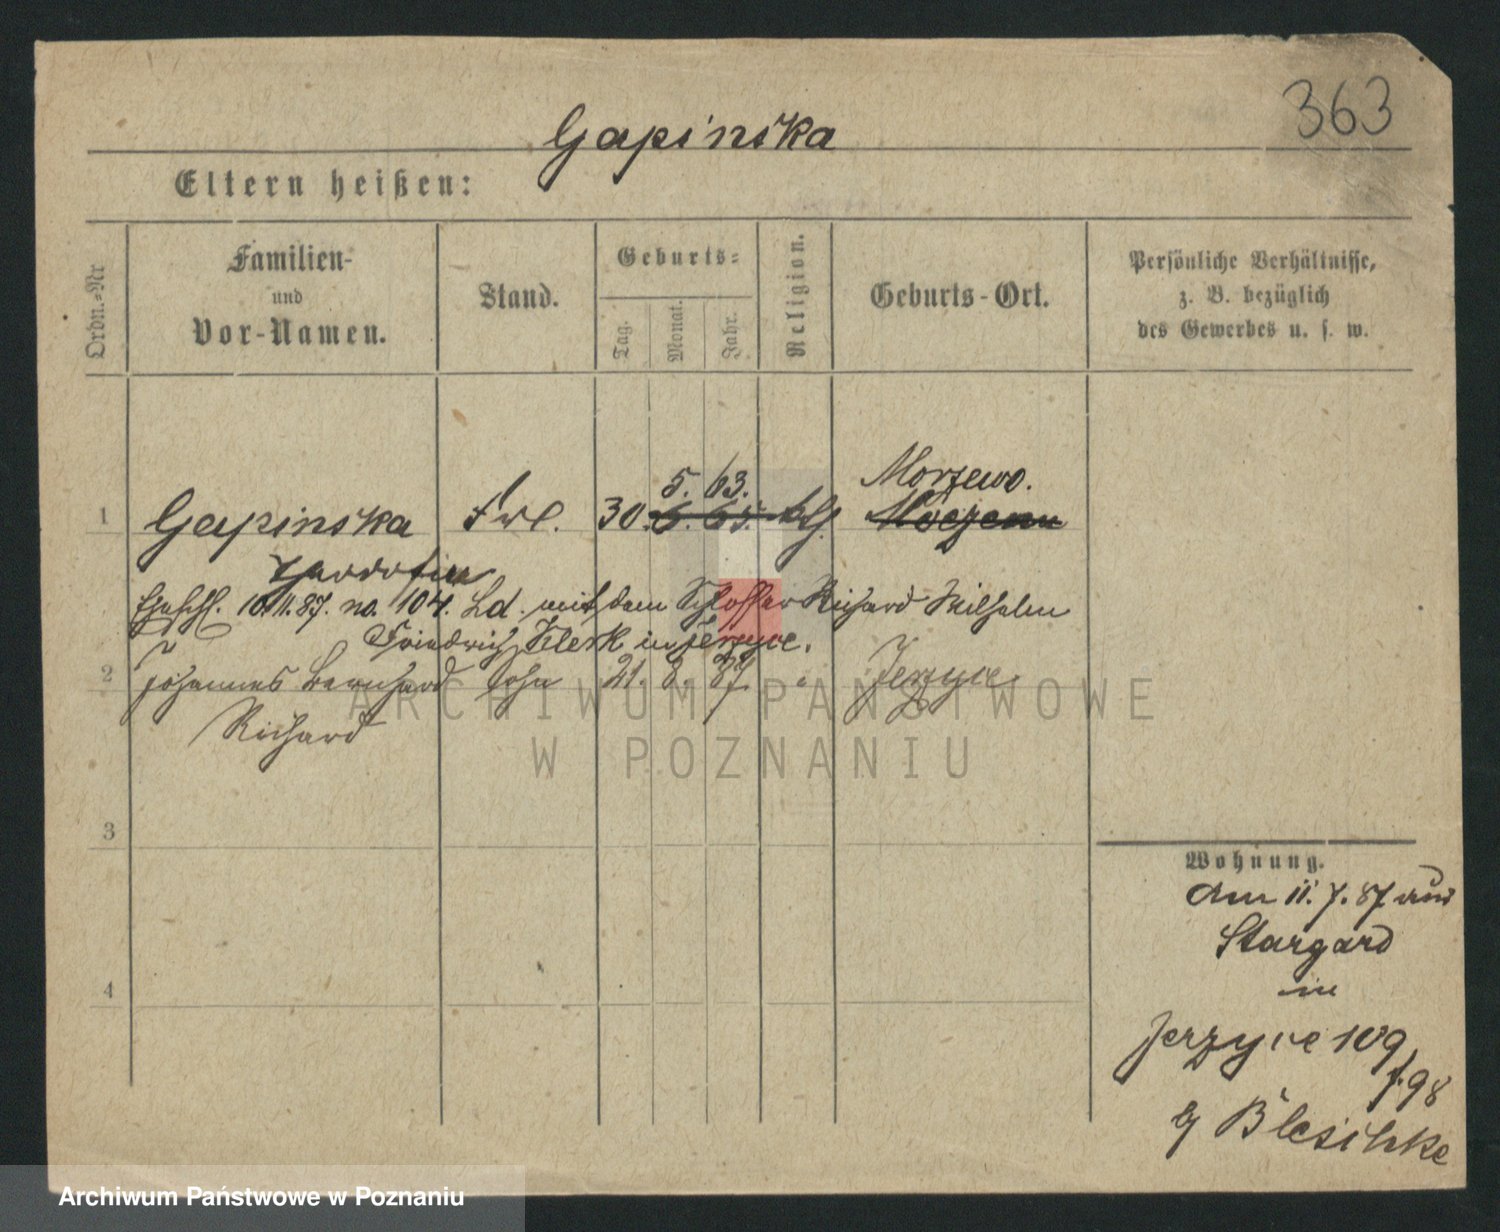 363
Gapinska
Eltern heißen:
Ordn.=Nr
Familien-
und
Vor-Namen.
Stand.
Geburts=
Tag.
Monat.
Jahr.
Religion.
Geburts-Ort.
Persönliche Verhältnisse,
z. B. bezüglich
des Gewerbes u. s. w.
5. 63. Morzewo.
1 Gapinska Frl. 30. 6. 65.
Ehschl. 10.11.87. no. 104. Ld. mit dem Schlosser Richard Wilhelm
Friedrich in Jerzyce.
2 Johannes Bernhard Sohn 21. 8. 87 " Jerzyce
Richard
3
4
Wohnung.
Am 11. 7. 87 aus
Stargard
in
Jerzyce 109
f. 98
b/ Bleschke
ARCHIWUM PAŃSTWOWE
W POZNANIU
Archiwum Państwowe w Poznaniu